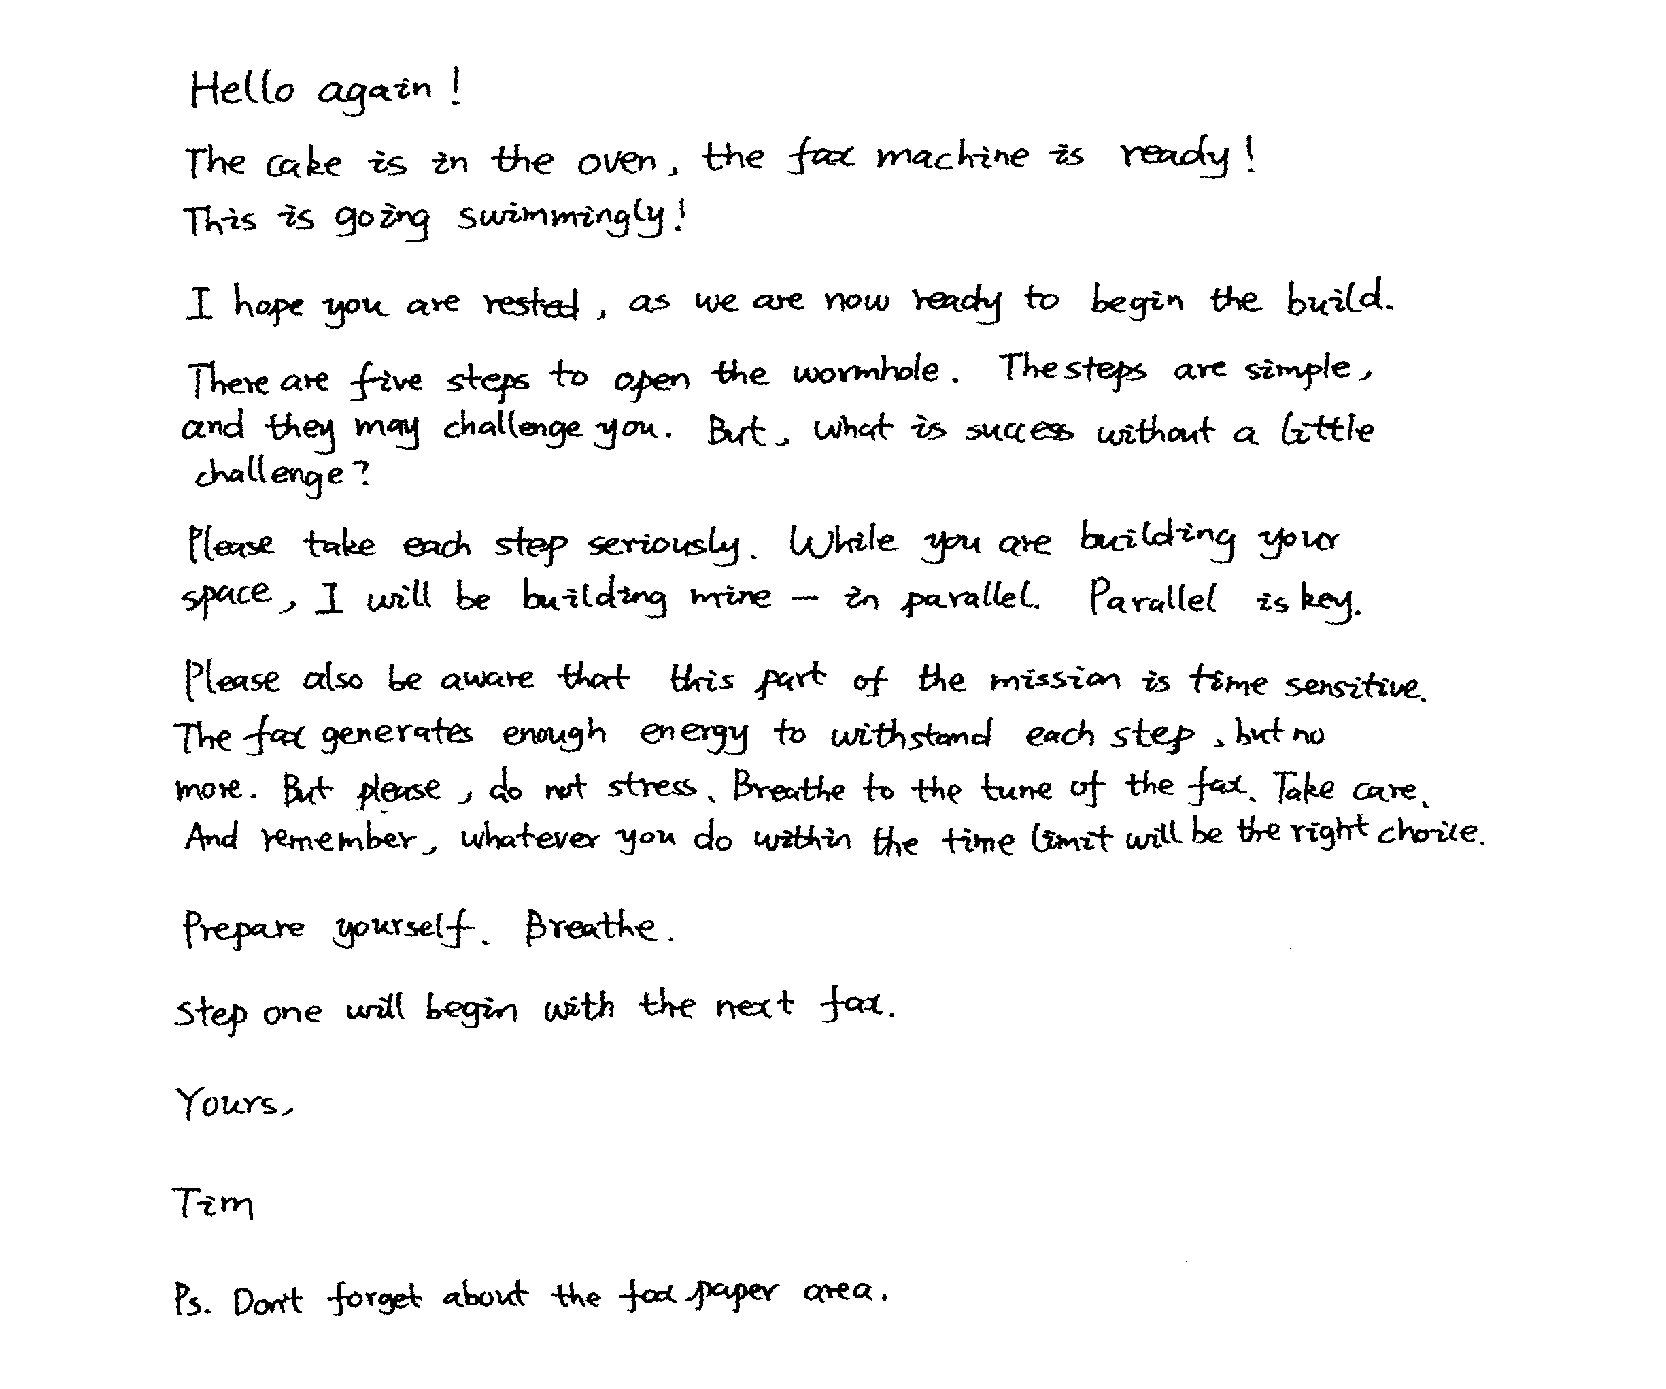 Hello again!
The cake is in the oven, the fax machine is ready!
This is going swimmingly!
I hope you are rested, as we are now ready to begin the build.
There are five steps to open the wormhole. The steps are simple,
and they may challenge you. But, what is success without a little
challenge?
Please take each step seriously. While you are building your
space, I will be building mine - in parallel. Parallel is key.
Please also be aware that this part of the mission is time sensitive.
The fax generates enough energy to withstand each step, but no
more. But please, do not stress. Breathe to the tune of the fax. Take care.
And remember, whatever you do within the time limit will be the right choice.
Prepare yourself. Breathe.
Step one will begin with the next fax.
Yours,
Tim
Ps. Don't forget about the fax paper area.